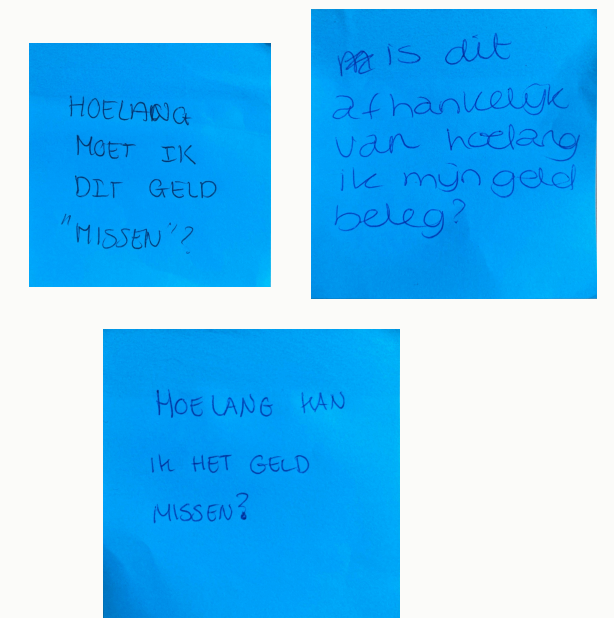 HOELANG
MOET IK
DIT GELD
"MISSEN"?
is dit
afhankelijk
van hoelang
ik mijn geld
beleg?
HOELANG KAN
IK HET GELD
MISSEN?